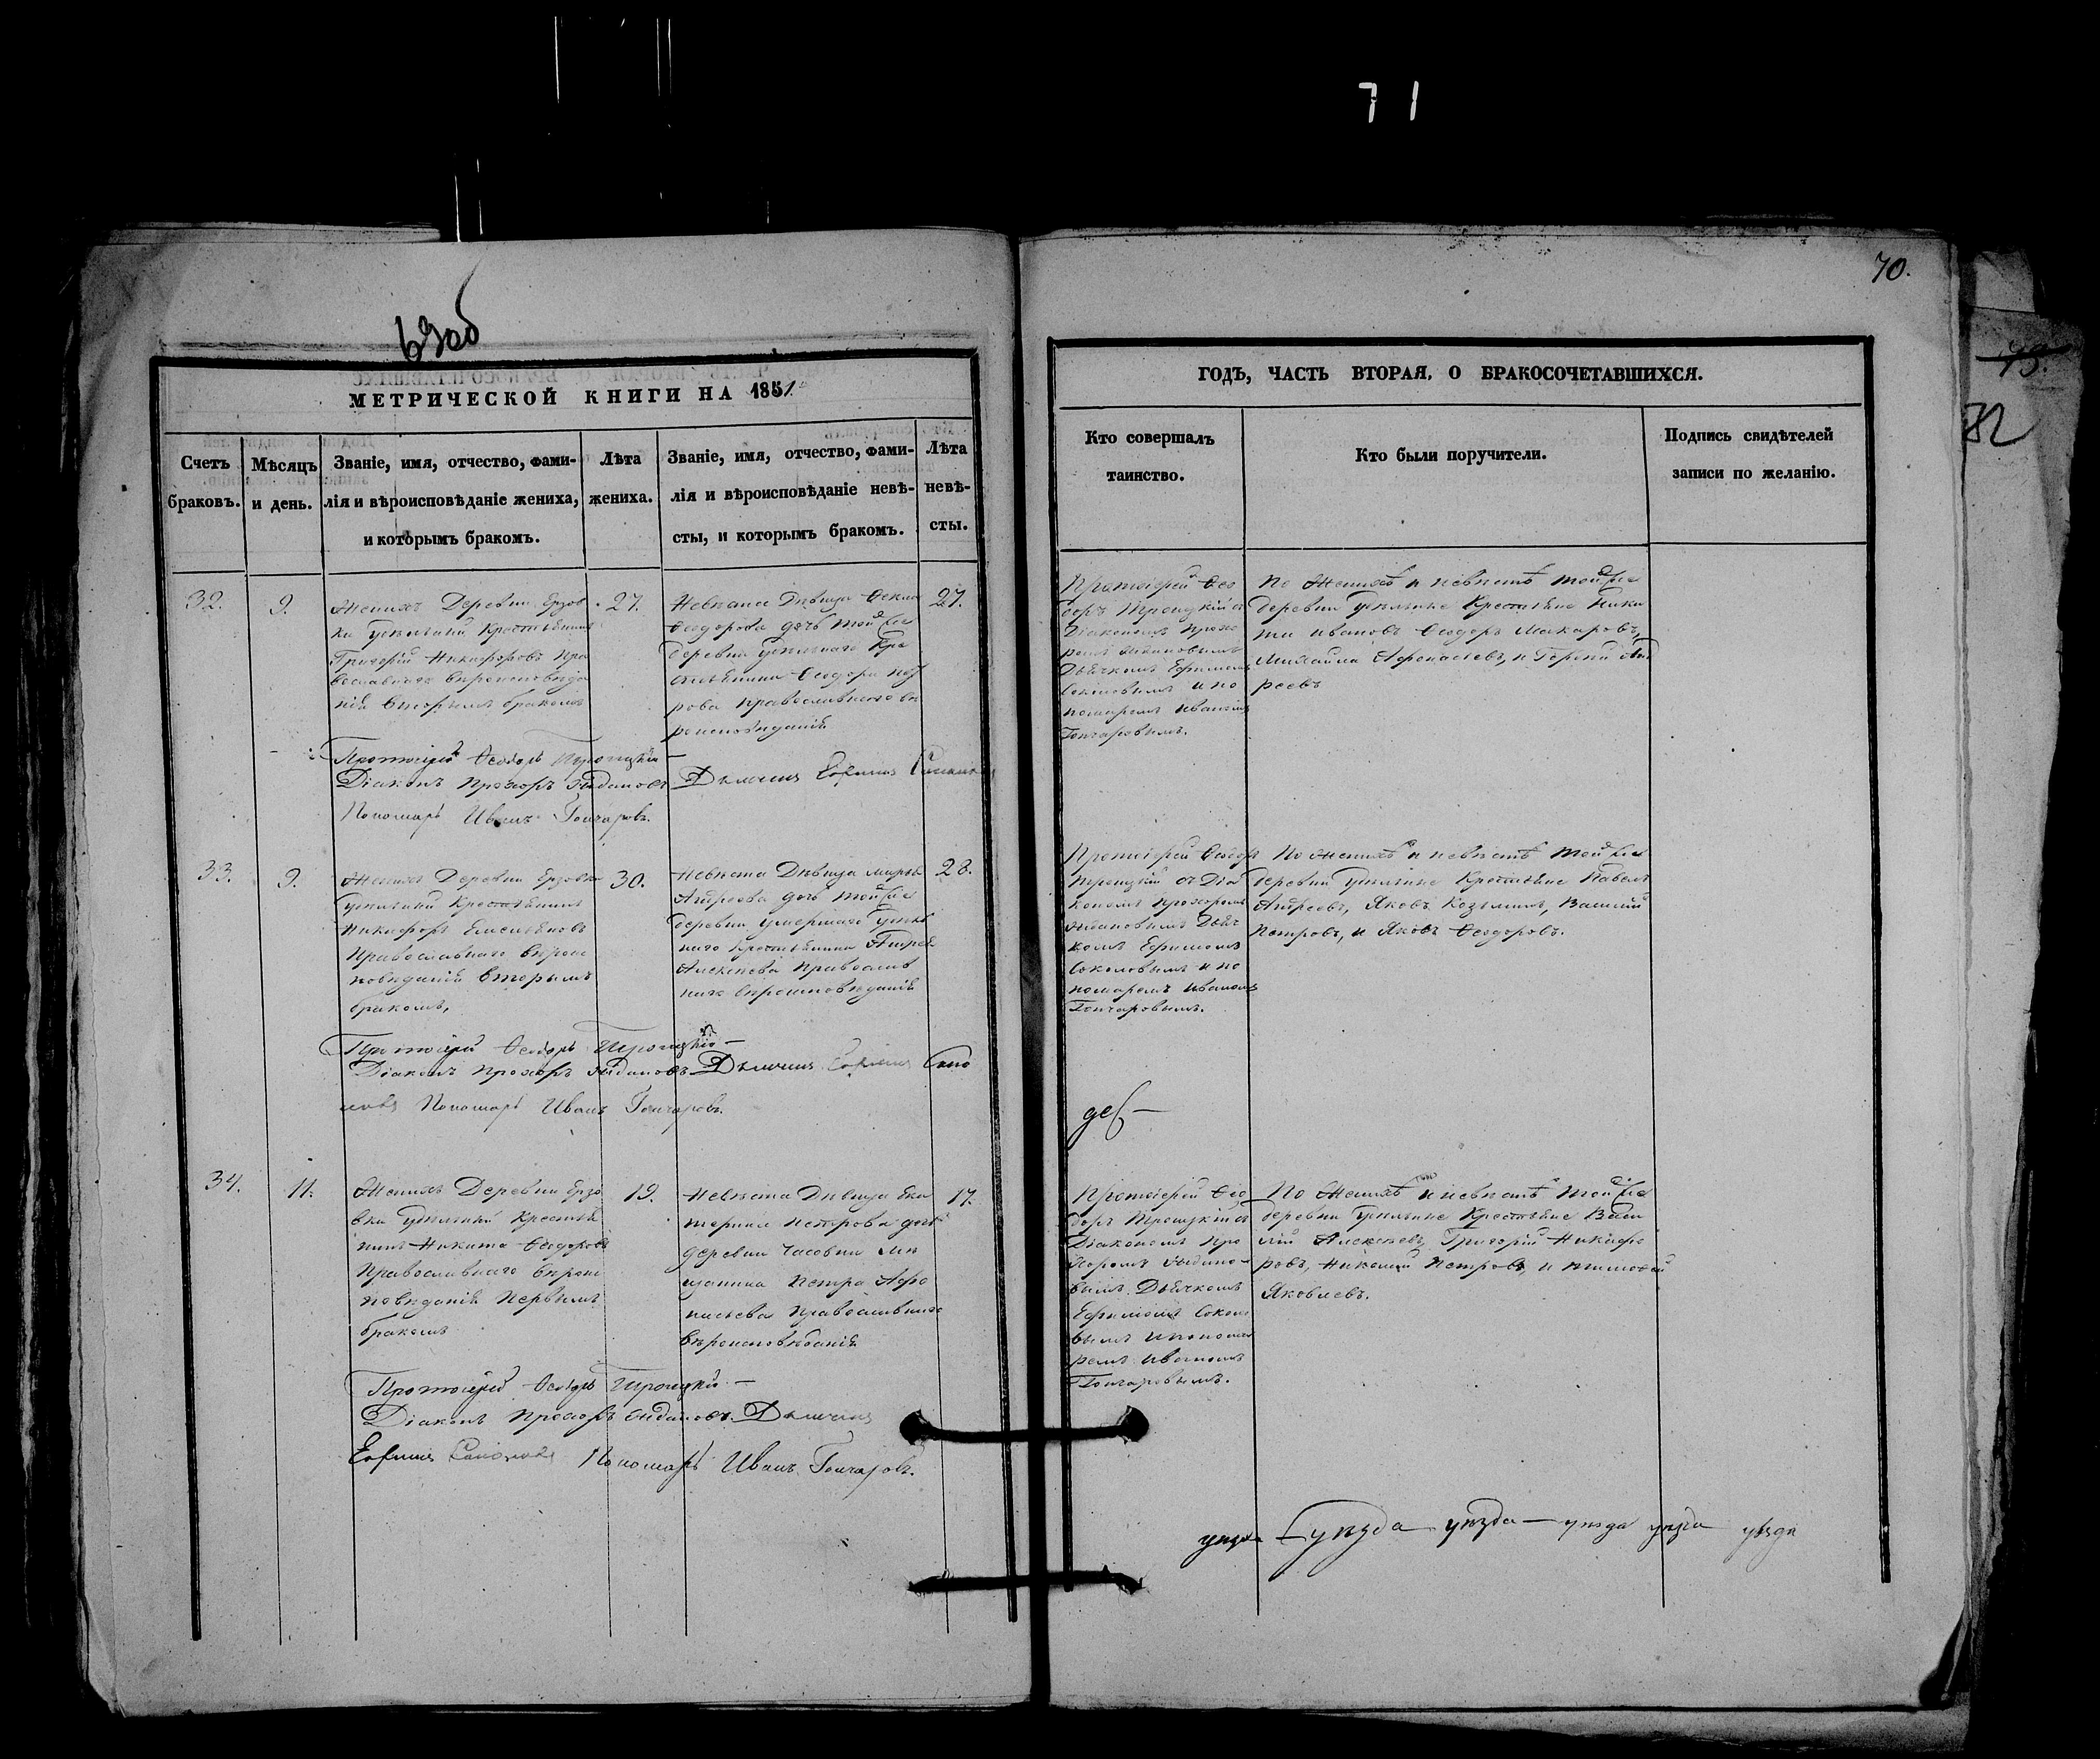 71
70.
69об
МЕТРИЧЕСКОЙ КНИГИ НА 1851
Счетъ браковъ.
Мѣсяцъ и день.
Званіе, имя, отчество, фами-
лія и вѣроисповѣданіе жениха,
и которымъ бракомъ.
Лѣта
жениха.
Званіе, имя, отчество, фами-
лія и вѣроисповѣданіе невѣ-
сты, и которымъ бракомъ.
Лѣта
невѣ-
сты.
ГОДЪ, ЧАСТЬ ВТОРАЯ, О БРАКОСОЧЕТАВШИХСЯ.
Кто совершалъ
таинство.
Кто были поручители.
Подпись свидѣтелей
записи по желанію.
75.
72
32.
9.
Женихъ Деревни Ерзов
ки удѣльный Крестьянинъ
Григорій Никифоровъ пра
вославнаго вѣроисповѣда
нія вторымъ бракомъ
27.
Невѣста Дѣвица Фекла
Феодорова дочь той же
деревни удѣльнаго Кре
стьянина Феодора
рова православнаго вѣ
роисповѣданія
27.
Протоіерей Фео
доръ Троицкій съ
Діакономъ Прохо
ромъ
Дьячкомъ Ефимомъ
Соколовымъ и по
номаремъ Иваномъ
Гончаровымъ.
По женихѣ и невѣстѣ той же
деревни удѣльные Крестьяне Ники
та Ивановъ Феодоръ Макаровъ,
Михайла Афонасьевъ, и
реевъ
Протоіерей Феодоръ Троицкій
Діаконъ Прохоръ
Дьячекъ Ефимъ Соколовъ
Пономарь Иванъ Гончаровъ.
33.
9.
Женихъ Деревни Ерзовки
удѣльный Крестьянинъ
Никифоръ Емельяновъ
Православнаго вѣроис
повѣданія вторымъ
бракомъ,
30.
Невѣста Дѣвица Марья
Андреева дочь той же
деревни умершаго удѣль
наго Крестьянина Андрея
Алексѣева Православ
наго вѣроисповѣданія
28.
Протоіерей Феодоръ
Троицкій съ Діа
кономъ Прохоромъ
Дьяч
комъ Ефимомъ
Соколовымъ и по
номаремъ Иваномъ
Гончаровымъ.
По женихѣ и невѣстѣ той же
деревни удѣльные Крестьяне Павелъ
Андреевъ, Яковъ Козьминъ, Василій
Петровъ, и Яковъ Феодоровъ.
Протоіерей Феодоръ Троицкій
Діаконъ Прохоръ Дьячекъ Ефимъ Соко
ловъ Пономарь Иванъ Гончаровъ.
34.
11.
Женихъ Деревни Ерзо
вки удѣльный Крестья
нинъ Никита Феодоровъ
Православнаго вѣроис
повѣданія первымъ
бракомъ
19.
Невѣста Дѣвица Ека
терина Петрова дочь
деревни Часовни мѣ
щанина Петра Афо
насьева Православнаго
вѣроисповѣданія
17.
Протоіерей Фео
доръ Троицкій съ
Діакономъ Про
хоромъ
вымъ Дьячкомъ
Ефимомъ Соколо
вымъ и понома
ремъ Иваномъ
Гончаровымъ.
По женихѣ и невѣстѣ той же
деревни удѣльные Крестьяне Васи
лій Алексѣевъ, Григорій Никифо
ровъ, Николай Петровъ, и Тимофей
Яковлевъ.
Протоіерей Феодоръ Троицкій
Діаконъ Прохоръ Дьячекъ
Ефимъ Соколовъ Пономарь Иванъ Гончаровъ.
уѣзда уѣзда уѣзда уѣзда уѣзда